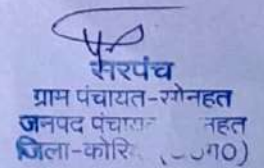 सरपंच
ग्राम पंचायत-सोनहत
जनपद पंचायत नहत
जिला-कोरि ०ग०)